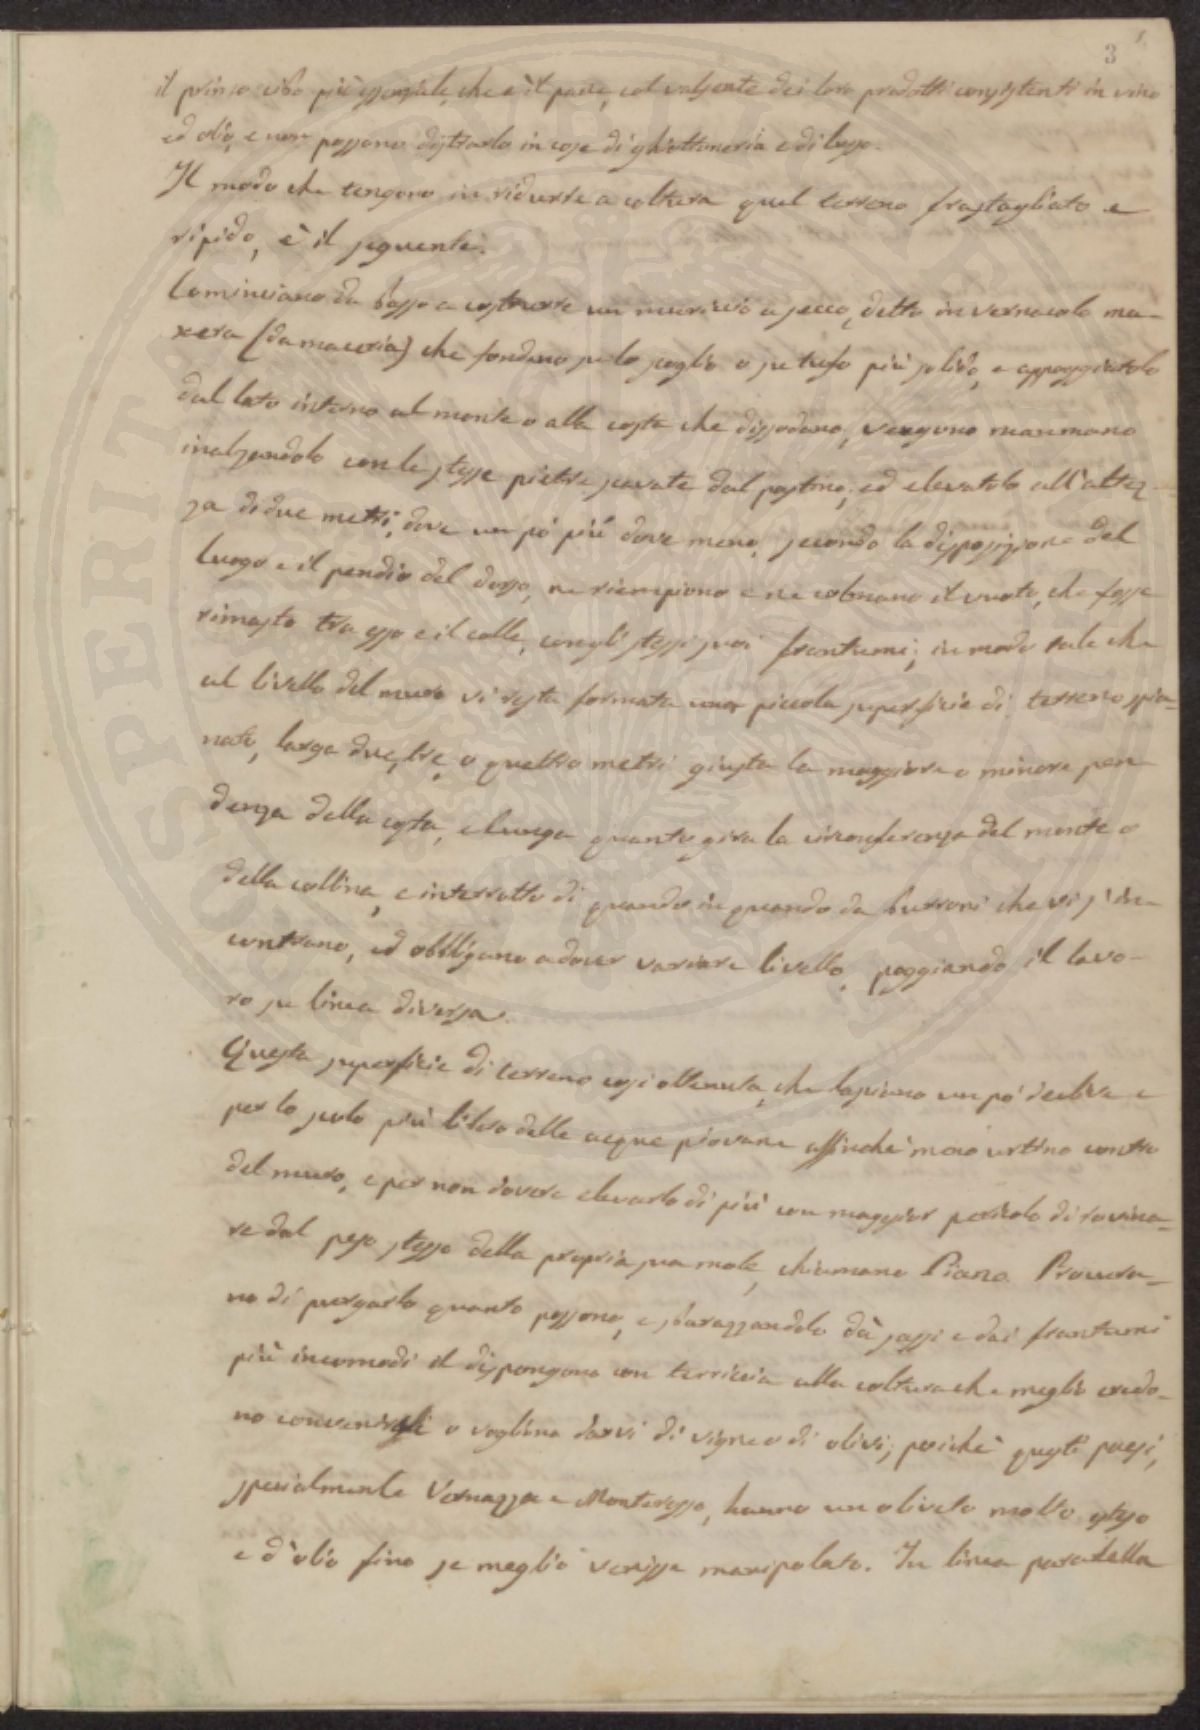 3
il primo cibo più essenziale, che è il pane, col valsente dei loro prodotti consistenti in vino
ed olio, e non possono distrarlo in cose di ghiottoneria e di lusso.
Il modo che tengono in ridurre a coltura quel terreno frastagliato e
ripido, è il seguente.
Cominciano da basso a costrurre un muricio a secco, detto in vernacolo ma-
xera (da maceria) che fondano su lo scoglio o su tufo più solido, e appoggiatolo
dal lato interno al monte o alla costa che dissodano, vengono manmano
inalzandolo con le stesse pietre scavate dal pastino; ed elevatolo all'altez-
za di due metri, dove un pò più dove meno, secondo la disposizione del
luogo e il pendio del dosso, ne riempiono e ne colmano il vuoto, che fosse
rimasto tra esso e il colle, congli stessi suoi frantumi; in modo tale che
al livello del muro vi resta formata una piccola superficie di terreno spia-
nato, larga due, tre, o quattro metri giusta la maggiore o minore pen
denza della costa, e lunga quanto gira la circonferenza del monte o
della collina, e interrotta di quando in quando da burroni che vi s'in-
contrano, ed obbligano a dover variare livello, poggiando il lavo-
ro su linea diversa.
Questa superficie di terreno così ottenuta, che lasciano un po' declive e
per lo scolo più libero delle acque piovane affinchè meno urtino contro
del muro, e per non dovere elevarlo di più con maggior pericolo di rovina-
re dal peso stesso della propria sua mole, chiamano Piano. Procura-
no di purgarlo quanto possono, e sbarazzandolo dà sassi e dai frantumi
più incomodi il dispongono con terriccia alla coltura che meglio credo-
no convenirgli o vogliono darvi di vigne o di olivi; perichè questi paesi,
specialmente Vernazza e Monterosso, hanno un oliveto molto esteso
e d'olio fino se meglio venisse manipolato. In linea paralella